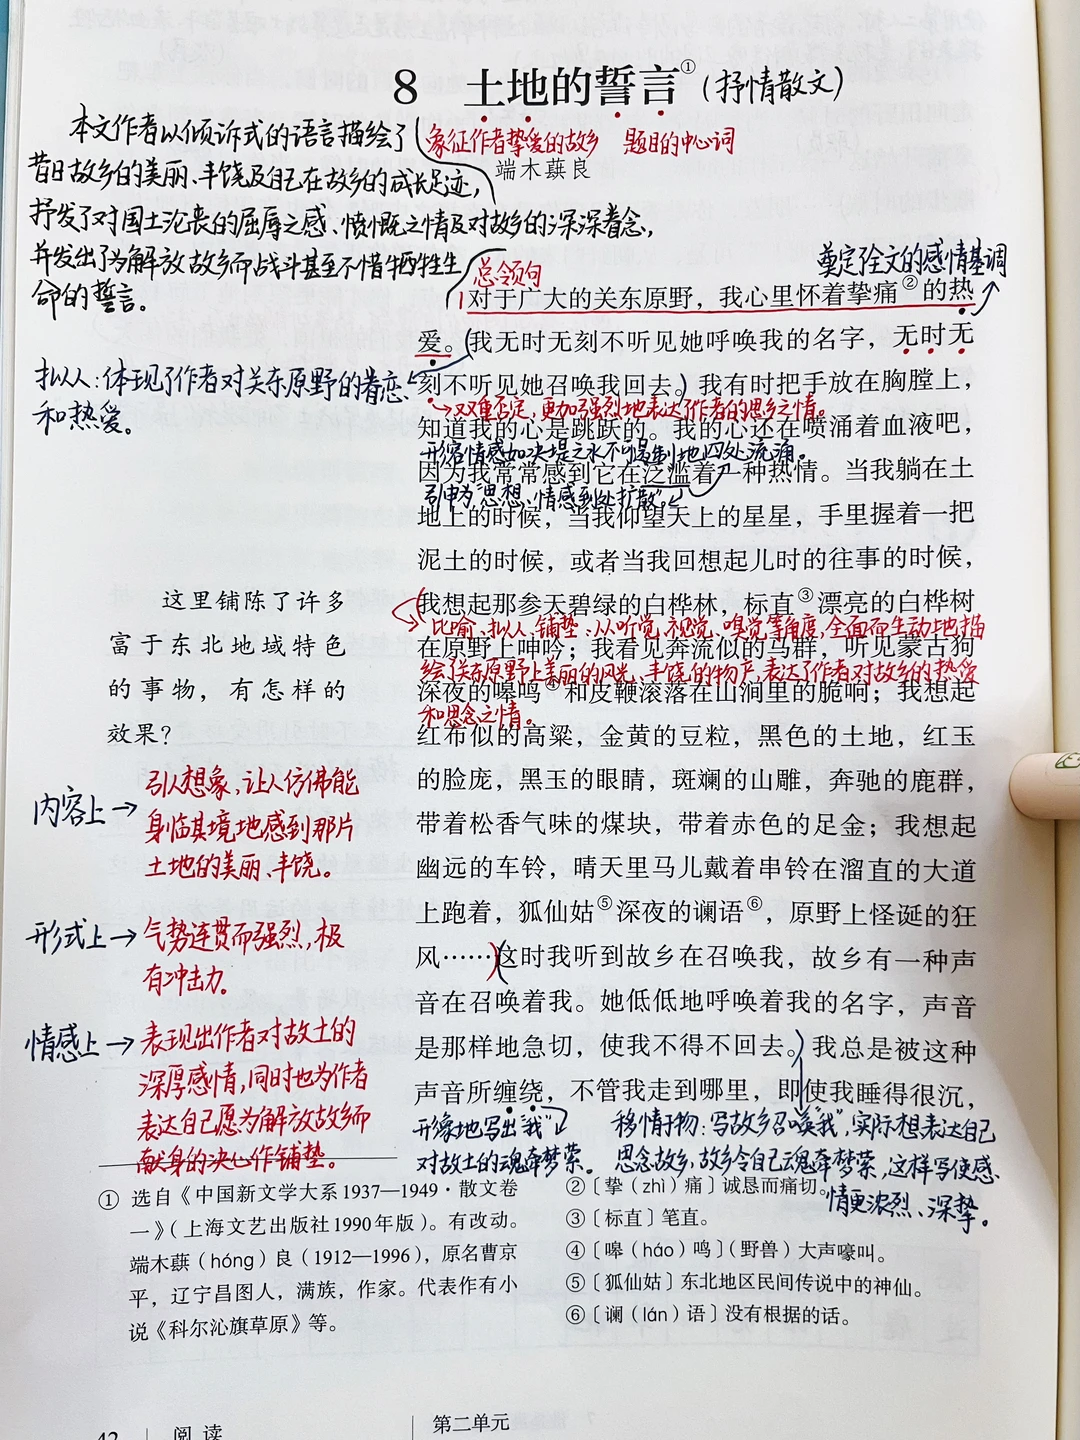 8 土地的誓言①(抒情散文)
象征作者挚爱的故乡 题目的中心词
端木蕻良
本文作者以倾诉式的语言描绘了
昔日故乡的美丽、丰饶及自己在故乡的成长足迹,
抒发了对国土沦丧的屈辱之感、愤慨之情及对故乡的深深眷念,
并发出了为解放故乡而战斗甚至不惜牺牲生
命的誓言。
总领句
奠定全文的感情基调
1 对于广大的关东原野，我心里怀着挚痛②的热
爱。(我无时无刻不听见她呼唤我的名字，无时无
拟人:体现了作者对关东原野的眷恋
和热爱。
刻不听见她召唤我回去。)我有时把手放在胸膛上，
→双重否定,更加强烈地表达了作者的思乡之情。
知道我的心是跳跃的。我的心还在喷涌着血液吧，
形容情感如决堤之水不可遏制地四处流涌。
因为我常常感到它在泛滥着一种热情。当我躺在土
引申为"思想、情感到处扩散"
地上的时候，当我仰望天上的星星，手里握着一把
泥土的时候，或者当我回想起儿时的往事的时候，
(我想起那参天碧绿的白桦林，标直③漂亮的白桦树
比喻、拟人、铺垫、从听觉、视觉、嗅觉等角度,全面而生动地描
在原野上呻吟；我看见奔流似的马群，听见蒙古狗
绘了关东原野上美丽的风光、丰饶的物产,表达了作者对故乡的热爱
深夜的嗥鸣④和皮鞭滚落在山涧里的脆响；我想起
和思念之情。
红布似的高粱，金黄的豆粒，黑色的土地，红玉
的脸庞，黑玉的眼睛，斑斓的山雕，奔驰的鹿群，
带着松香气味的煤块，带着赤色的足金；我想起
幽远的车铃，晴天里马儿戴着串铃在溜直的大道
上跑着，狐仙姑⑤深夜的谰语⑥，原野上怪诞的狂
风……)(这时我听到故乡在召唤我，故乡有一种声
音在召唤着我。她低低地呼唤着我的名字，声音
是那样地急切，使我不得不回去。)我总是被这种
声音所缠绕，不管我走到哪里，即使我睡得很沉，
形象地写出"我"
对故土的魂牵梦萦。
移情于物:写故乡召唤"我",实际想表达自己
思念故乡,故乡令自己魂牵梦萦,这样写使感
情更浓烈、深挚。
这里铺陈了许多
富于东北地域特色
的事物，有怎样的
效果？
内容上→
引人想象,让人仿佛能
身临其境地感到那片
土地的美丽、丰饶。
形式上→
气势连贯而强烈,极
有冲击力。
情感上→
表现出作者对故土的
深厚感情,同时也为作者
表达自己愿为解放故乡而
献身的决心作铺垫。
① 选自《中国新文学大系1937—1949·散文卷
一》（上海文艺出版社1990年版）。有改动。
端木蕻（hóng）良（1912—1996），原名曹京
平，辽宁昌图人，满族，作家。代表作有小
说《科尔沁旗草原》等。
②〔挚（zhì）痛〕诚恳而痛切。
③〔标直〕笔直。
④〔嗥（háo）鸣〕（野兽）大声嚎叫。
⑤〔狐仙姑〕东北地区民间传说中的神仙。
⑥〔谰（lán）语〕没有根据的话。
42 阅读
第二单元